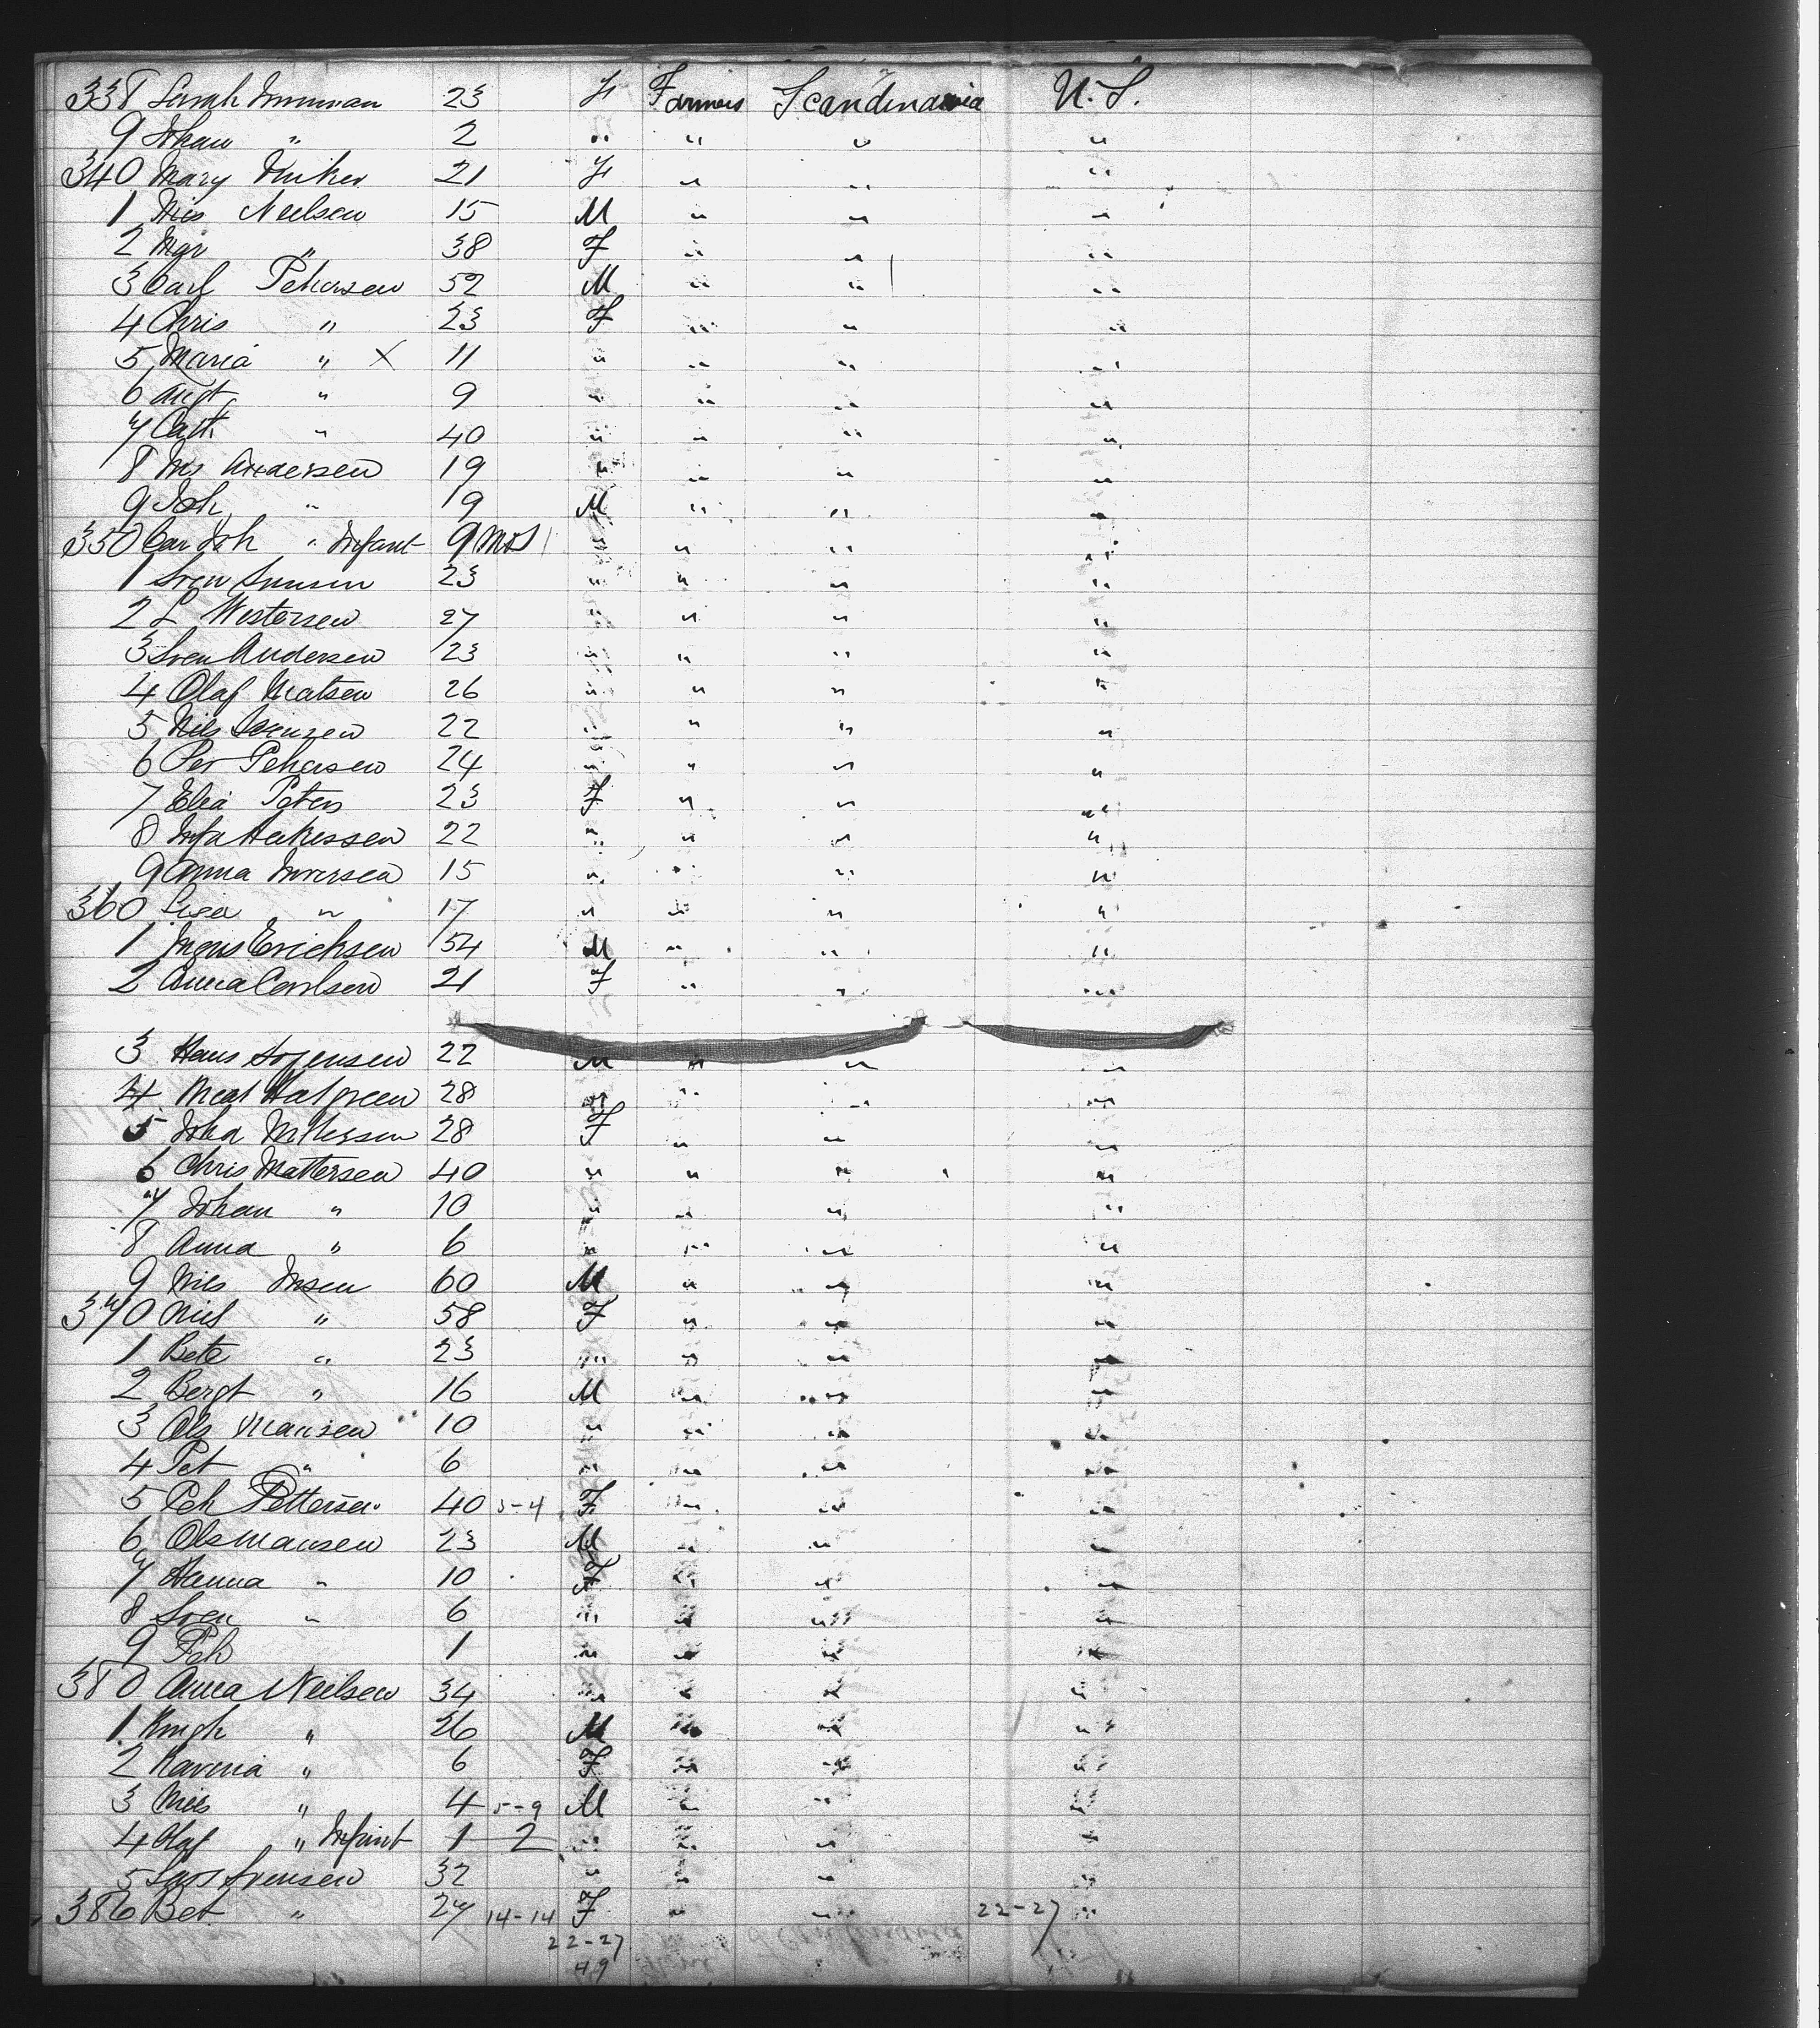 338 Sarah 23 F Farmers Scandinavia U.S.
9 Johan " 2 " " " "
340 Mary 21 F " " "
1 Nies Neilsen 15 M " " "
2 Mgr " 38 F " " "
3 Carl Petersen 52 M " " "
4 Chris " 23 F " " "
5 Maria " X 11 " " " "
6 Augt " 9 " " " "
7 Cath " 40 " " " "
8 Ms Andersen 19 " " " "
9 Joh " 19 M " " "
350 Car Joh " Infant 9 mos " " " "
1 Sven 23 " " " "
2 L Westersen 27 " " " "
3 Sven Andersen 23 " " " "
4 Olaf Matsen 26 " " " "
5 Nils 22 " " " "
6 Per Petersen 24 " " " "
7 Elia Peters 23 F " " "
8 22 " " " "
9 Anna 15 " " " "
360 Lisa " 17 " " " "
1 Mons Erichsen 54 M " " "
2 Anna Carlsen 21 F " " "
3 Hans Sorensen 22 M " " "
4 28 " " " "
5 Joha 28 F " " "
6 Chris Mattersen 40 " " " "
7 Johan " 10 " " " "
8 Anna " 6 " " " "
9 Nils 60 M " " "
370 Niel " 58 F " " "
1 Bete " 23 " " " "
2 Bergt " 16 M " " "
3 Ols Mansen 10 " " " "
4 Pet " 6 " " " "
5 Peh Pettersen 40 5-4 F " " "
6 Ols Mansen 23 M " " "
7 Hanna " 10 F " " "
8 Sven " 6 " " " "
9 Peh 1 " " " "
380 Anna Neilsen 34 " " " "
1 " 26 M " " "
2 " 6 F " " "
3 Niels " 4 5-9 M " " "
4 Olaf " Infant 1 2 " " " "
5 Lars Svensen 32 " " " "
386 Bet " 27 14-14 F " " 22-27 "
22-27
49